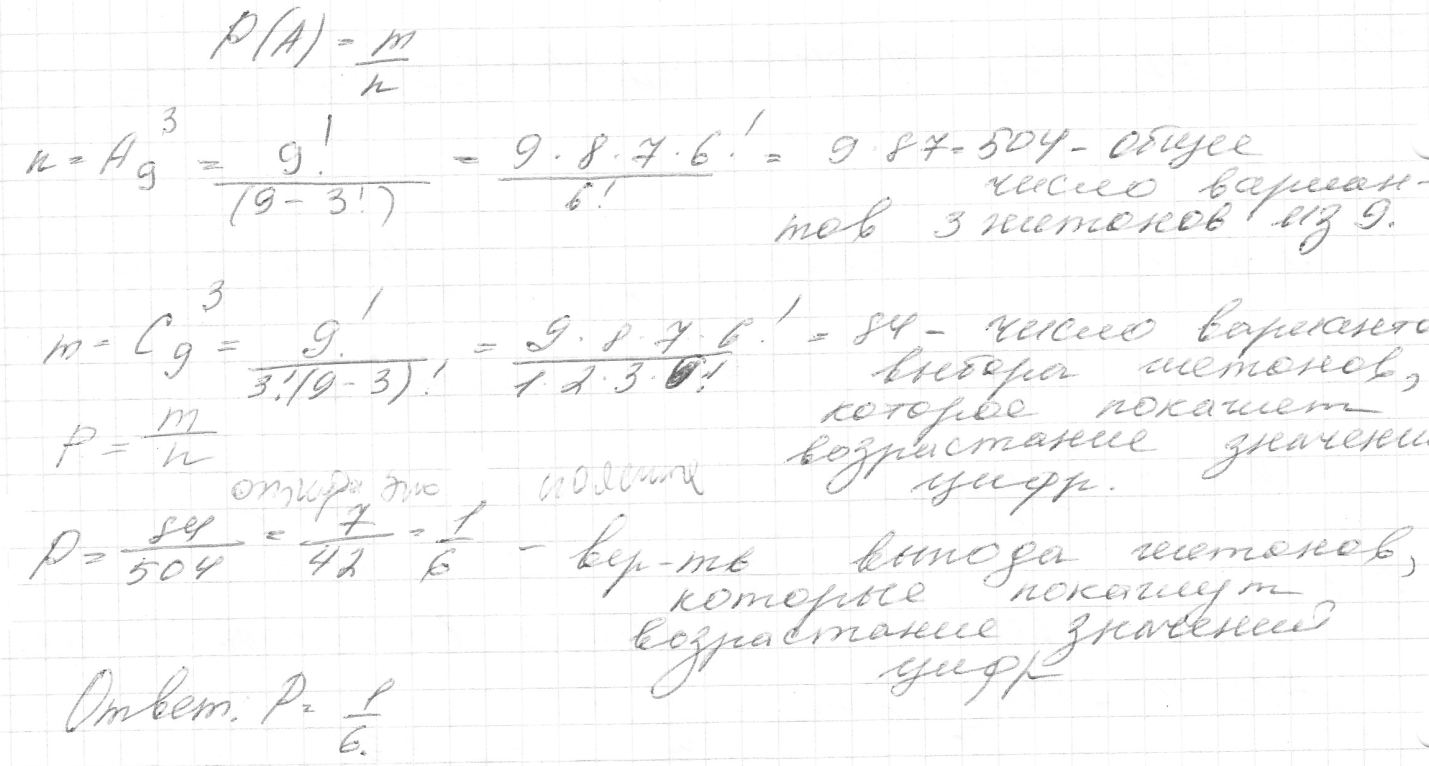 P(A) = m/n
n = A₉³ = 9!/(9 - 3!) = 9 · 8 · 7 · 6!/6! = 9 · 8 7 = 504 - общее
число вариан-
тов 3 жетонов из 9.
m = C₉³ = 9!/3!(9 - 3)! = 9 · 8 · 7 · 6!/1 · 2 · 3 · 6! = 84 - число варианто
выбора жетонов,
которое покажет
P = m/n
возрастание значени
цифр.
P = 84/504 = 7/42 = 1/6 - вер-ть выхода жетонов,
которые покажут
возрастание значений
цифр
Ответ. P = 1/6.